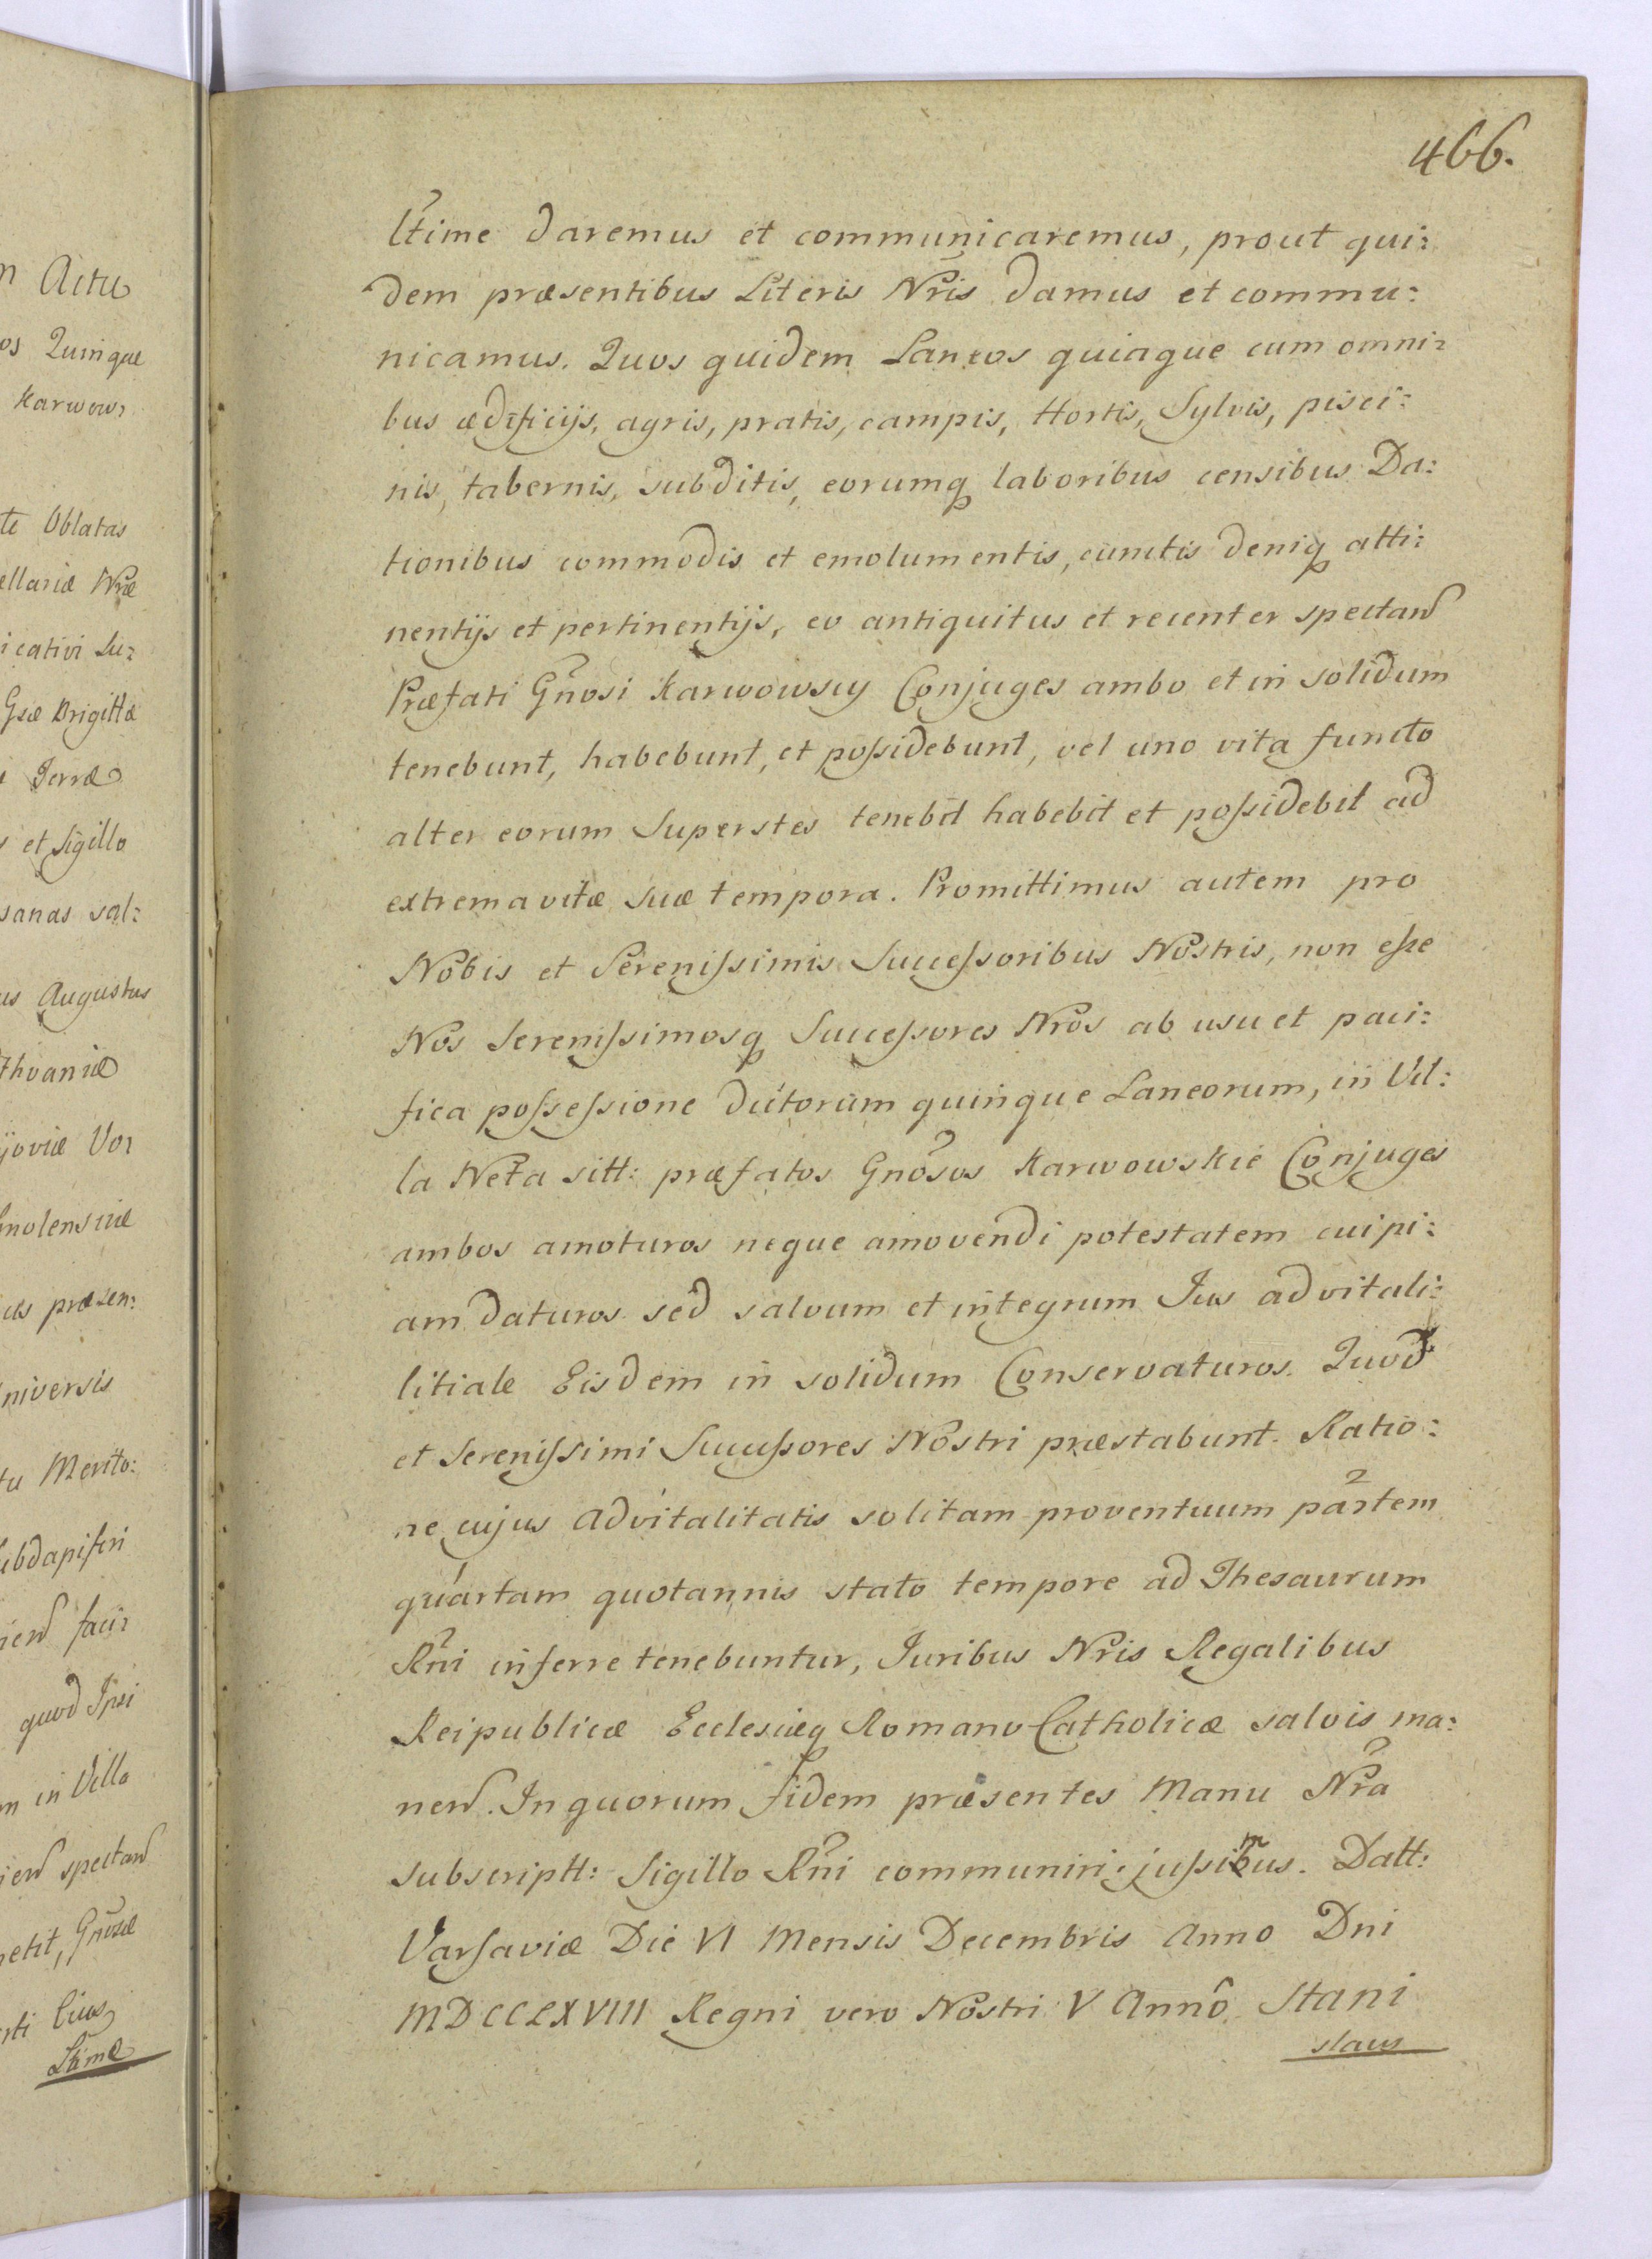 466.
n Actu
os Quinque
Karwow:
te Oblatas
ellariæ Nræ
icativi Su:
Gsæ Brigittæ
Terræ
et Sigillo
sanas sal:
us Augustus
thvaniæ
ijoviæ Vo:
molensciæ
præsen:
niversis
tu Merito:
ubdapiferi
faci:
quod Ipsi
m in Villa
spectań
petit, Gnosæ
rti Ejus
Ltimæ
Ltime daremus et communicaremus, prout qui:
dem præsentibus Literis Nris damus et commu:
nicamus. Quos quidem Laneos quinque cum omni:
bus ædificijs, agris, pratis, campis, Hortis, Sylvis, pisci:
nis, tabernis, subditis, eorumq laboribus censibus Da:
tionibus commodis et emolumentis, cunctis deniq atti:
nentijs et pertinentijs, eo antiquitus et recenter spectań
Præfati Gnosi Karwowscy Conjuges ambo et in solidum
tenebunt, habebunt, et possidebunt, vel uno vita functo
alter eorum Superstes tenebit habebit et possidebit ad
extrema vitæ suæ tempora. Promittimus autem pro
Nobis et Serenissimis Successoribus Nostris, non esse
Nos Serenissimosq Successores Nros ab usu et paci:
fica possessione dictorum quinque Laneorum, in Vil:
la Neta sitt: præfatos Gnosos Karwowskie Conjuges
ambos amoturos neque amovendi potestatem cuipi:
am daturos sed salvum et integrum Jus advitali:
litiale Eisdem in solidum Conservaturos. Quod
et Serenissimi Successores Nostri præstabunt. Ratio:
ne cujus advitalitatis solitam proventuum partem
quartam quotannis stato tempore ad Thesaurum
Rni inferre tenebuntur, Juribus Nris Regalibus
Reipublicæ Ecclesiæq Romano Catholicæ salvis ma:
neń. In quorum fidem præsentes Manu Nra
subscriptt: Sigillo Rni communiri jussimus. Datt:
Varsaviæ Die VI Mensis Decembris Anno Dni
MDCCLXVIII Regni vero Nostri V Anno Stani
slaus